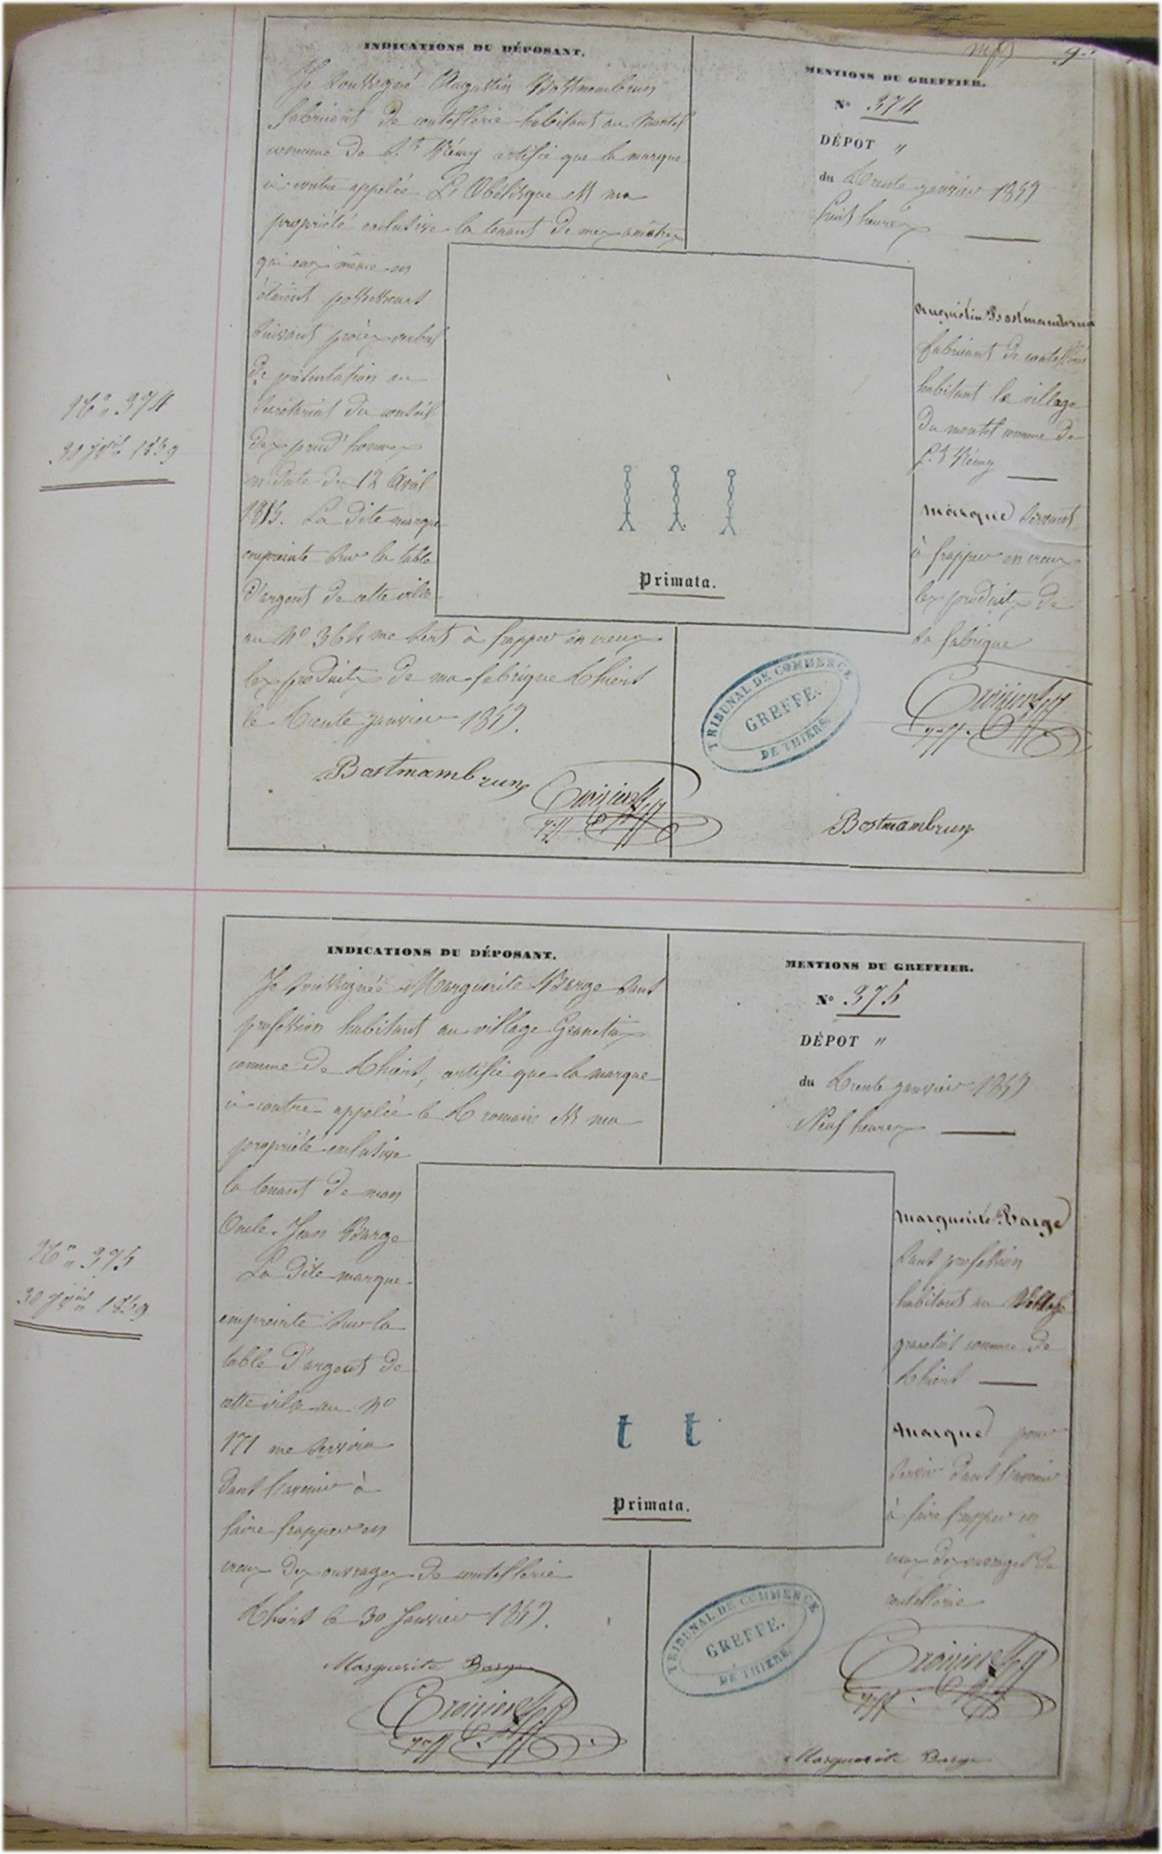 INDICATIONS DU DÉPOSANT.
Je soussigné Augustin Bostmambrun
fabricant de coutellerie habitant au montel
commune de St Rémy certifie que la marque
ci-contre appelée L'Obélisque est ma
propriété exclusive la tenant de mes ancêtres
qui eux même en
étaient possesseurs
suivant procès verbal
de présentation au
Secrétariat du conseil
des prud'hommes
en date du 12 Avril
1815. La dite marque
empreinte sur la table
d'argent de cette ville
au No me sert à frapper en creux
les produits de ma fabrique Thiers
le trente janvier 1859.
Bostmambrun
MENTIONS DU GREFFIER.
No 374
DÉPOT "
du trente janvier 1859
huit heures
Augustin Bostmambrun
fabricant de coutellerie
habitant le village
du montel commune de
St Rémy
marque servant
à frapper en creux
les produits de
sa fabrique
Primata.
TRIBUNAL DE COMMERCE
GREFFE.
DE THIERS.
Bostmambrun
No 374
30 jer 1859
INDICATIONS DU DÉPOSANT.
Je soussignée Marguerite Barge sans
profession habitant au village Granetias
commune de Thiers, certifie que la marque
ci-contre appelée le t romain est ma
propriété exclusive
la tenant de mon
Oncle Jean Barge
La dite marque
empreinte sur la
table d'argent de
cette ville au No
171 me servira
dans l'avenir à
faire frapper en
creux des ouvrages de coutellerie
Thiers le 30 Janvier 1859.
Marguerite Barge
MENTIONS DU GREFFIER.
No 375
DÉPOT "
du trente janvier 1859
Neuf heures
Marguerite Barge
sans profession
habitant au village
commune de
Thiers
marque pour
servir dans l'avenir
à faire frapper en
creux des ouvrages de
coutellerie
t t
Primata.
TRIBUNAL DE COMMERCE
GREFFE.
DE THIERS.
Marguerite Barge
No 375
30 jer 1859